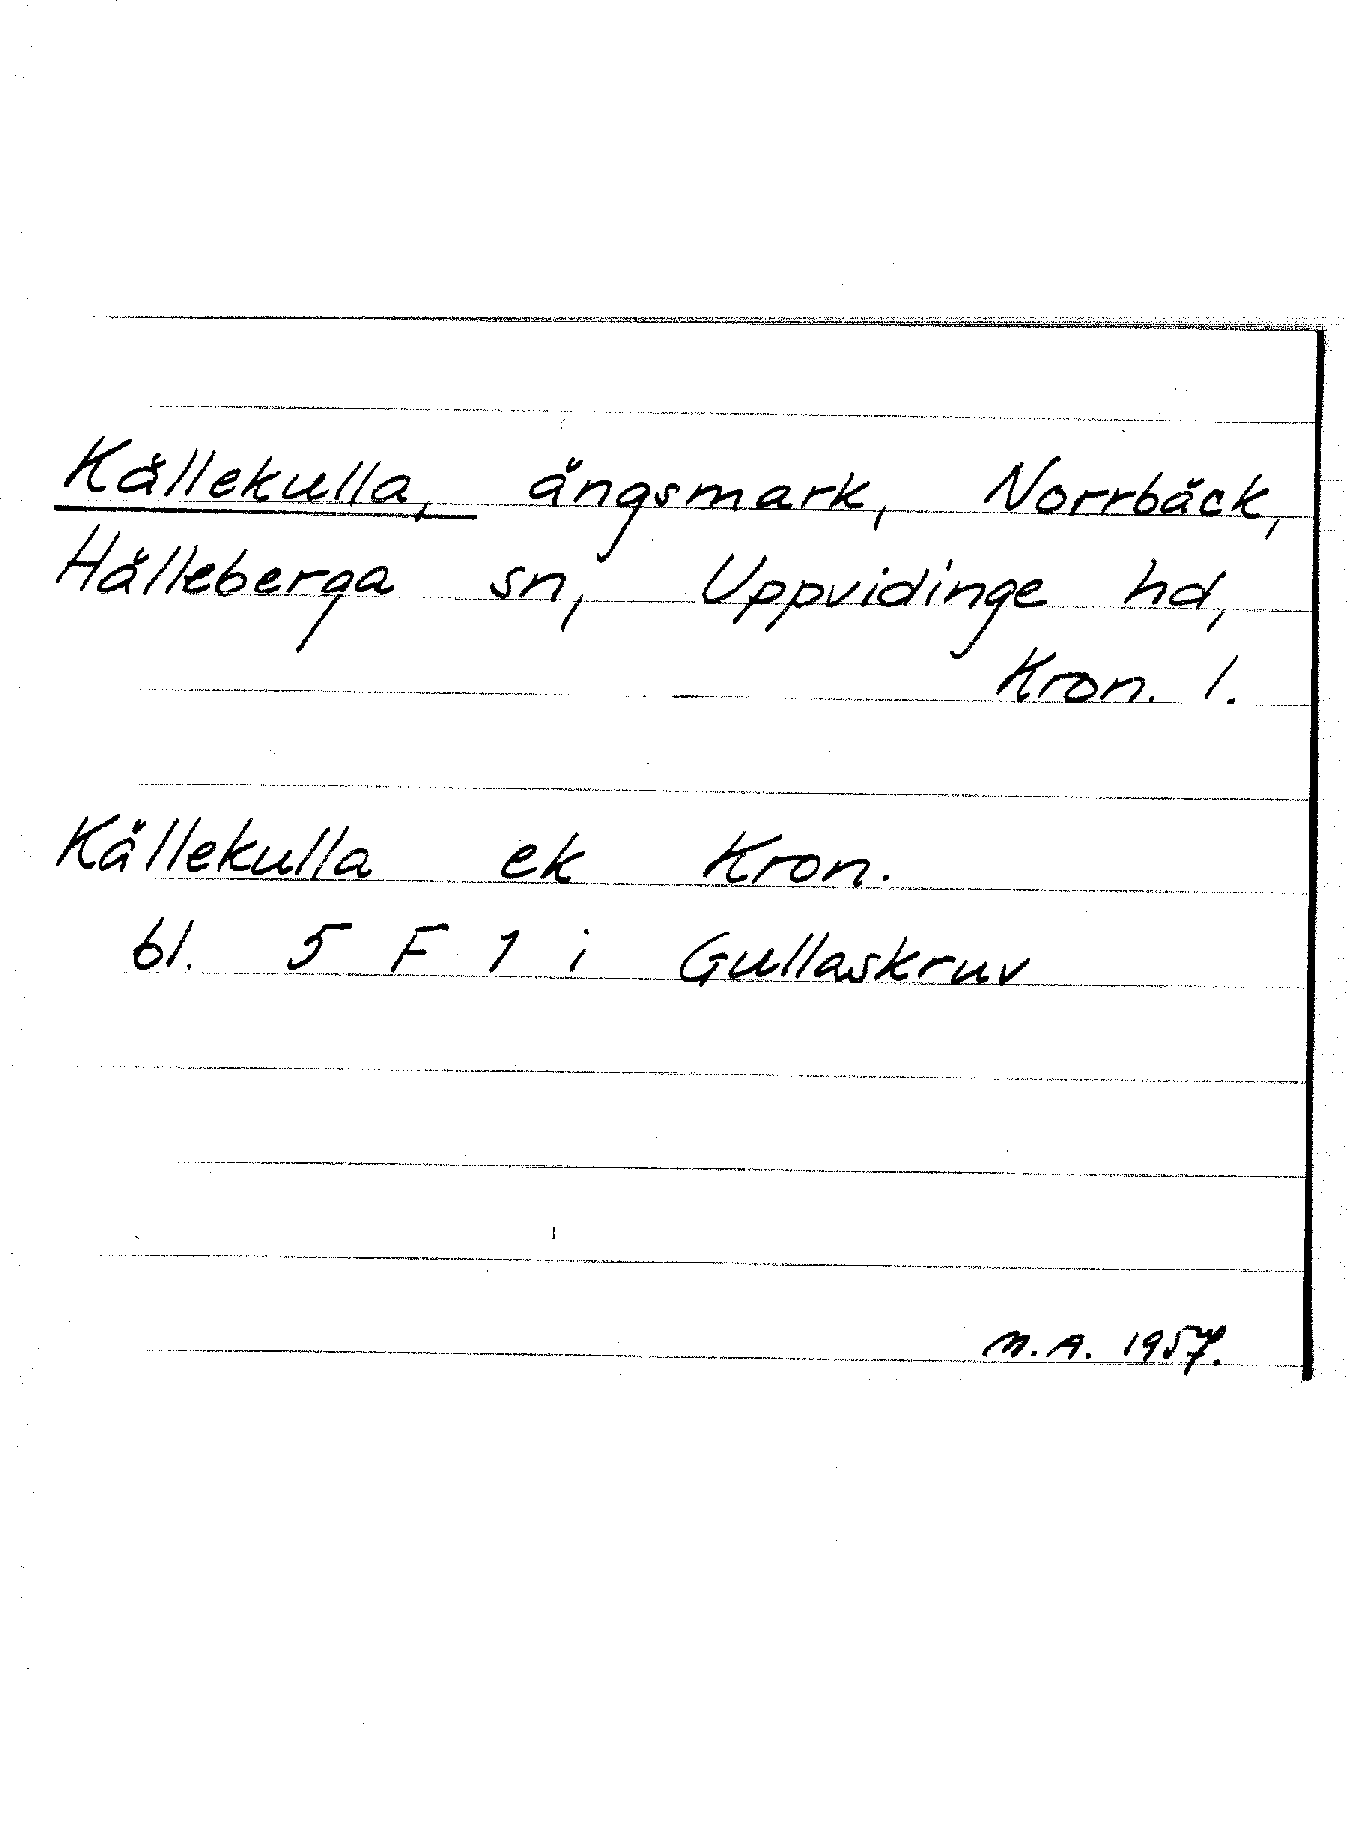 Källekulla, ängsmark, Norrbäck,
Hälleberga sn, Uppvidinge hd,
Kron. l.
Källekulla ek Kron.
bl. 5 F 1 i Gullaskruv
M.A. 1957.